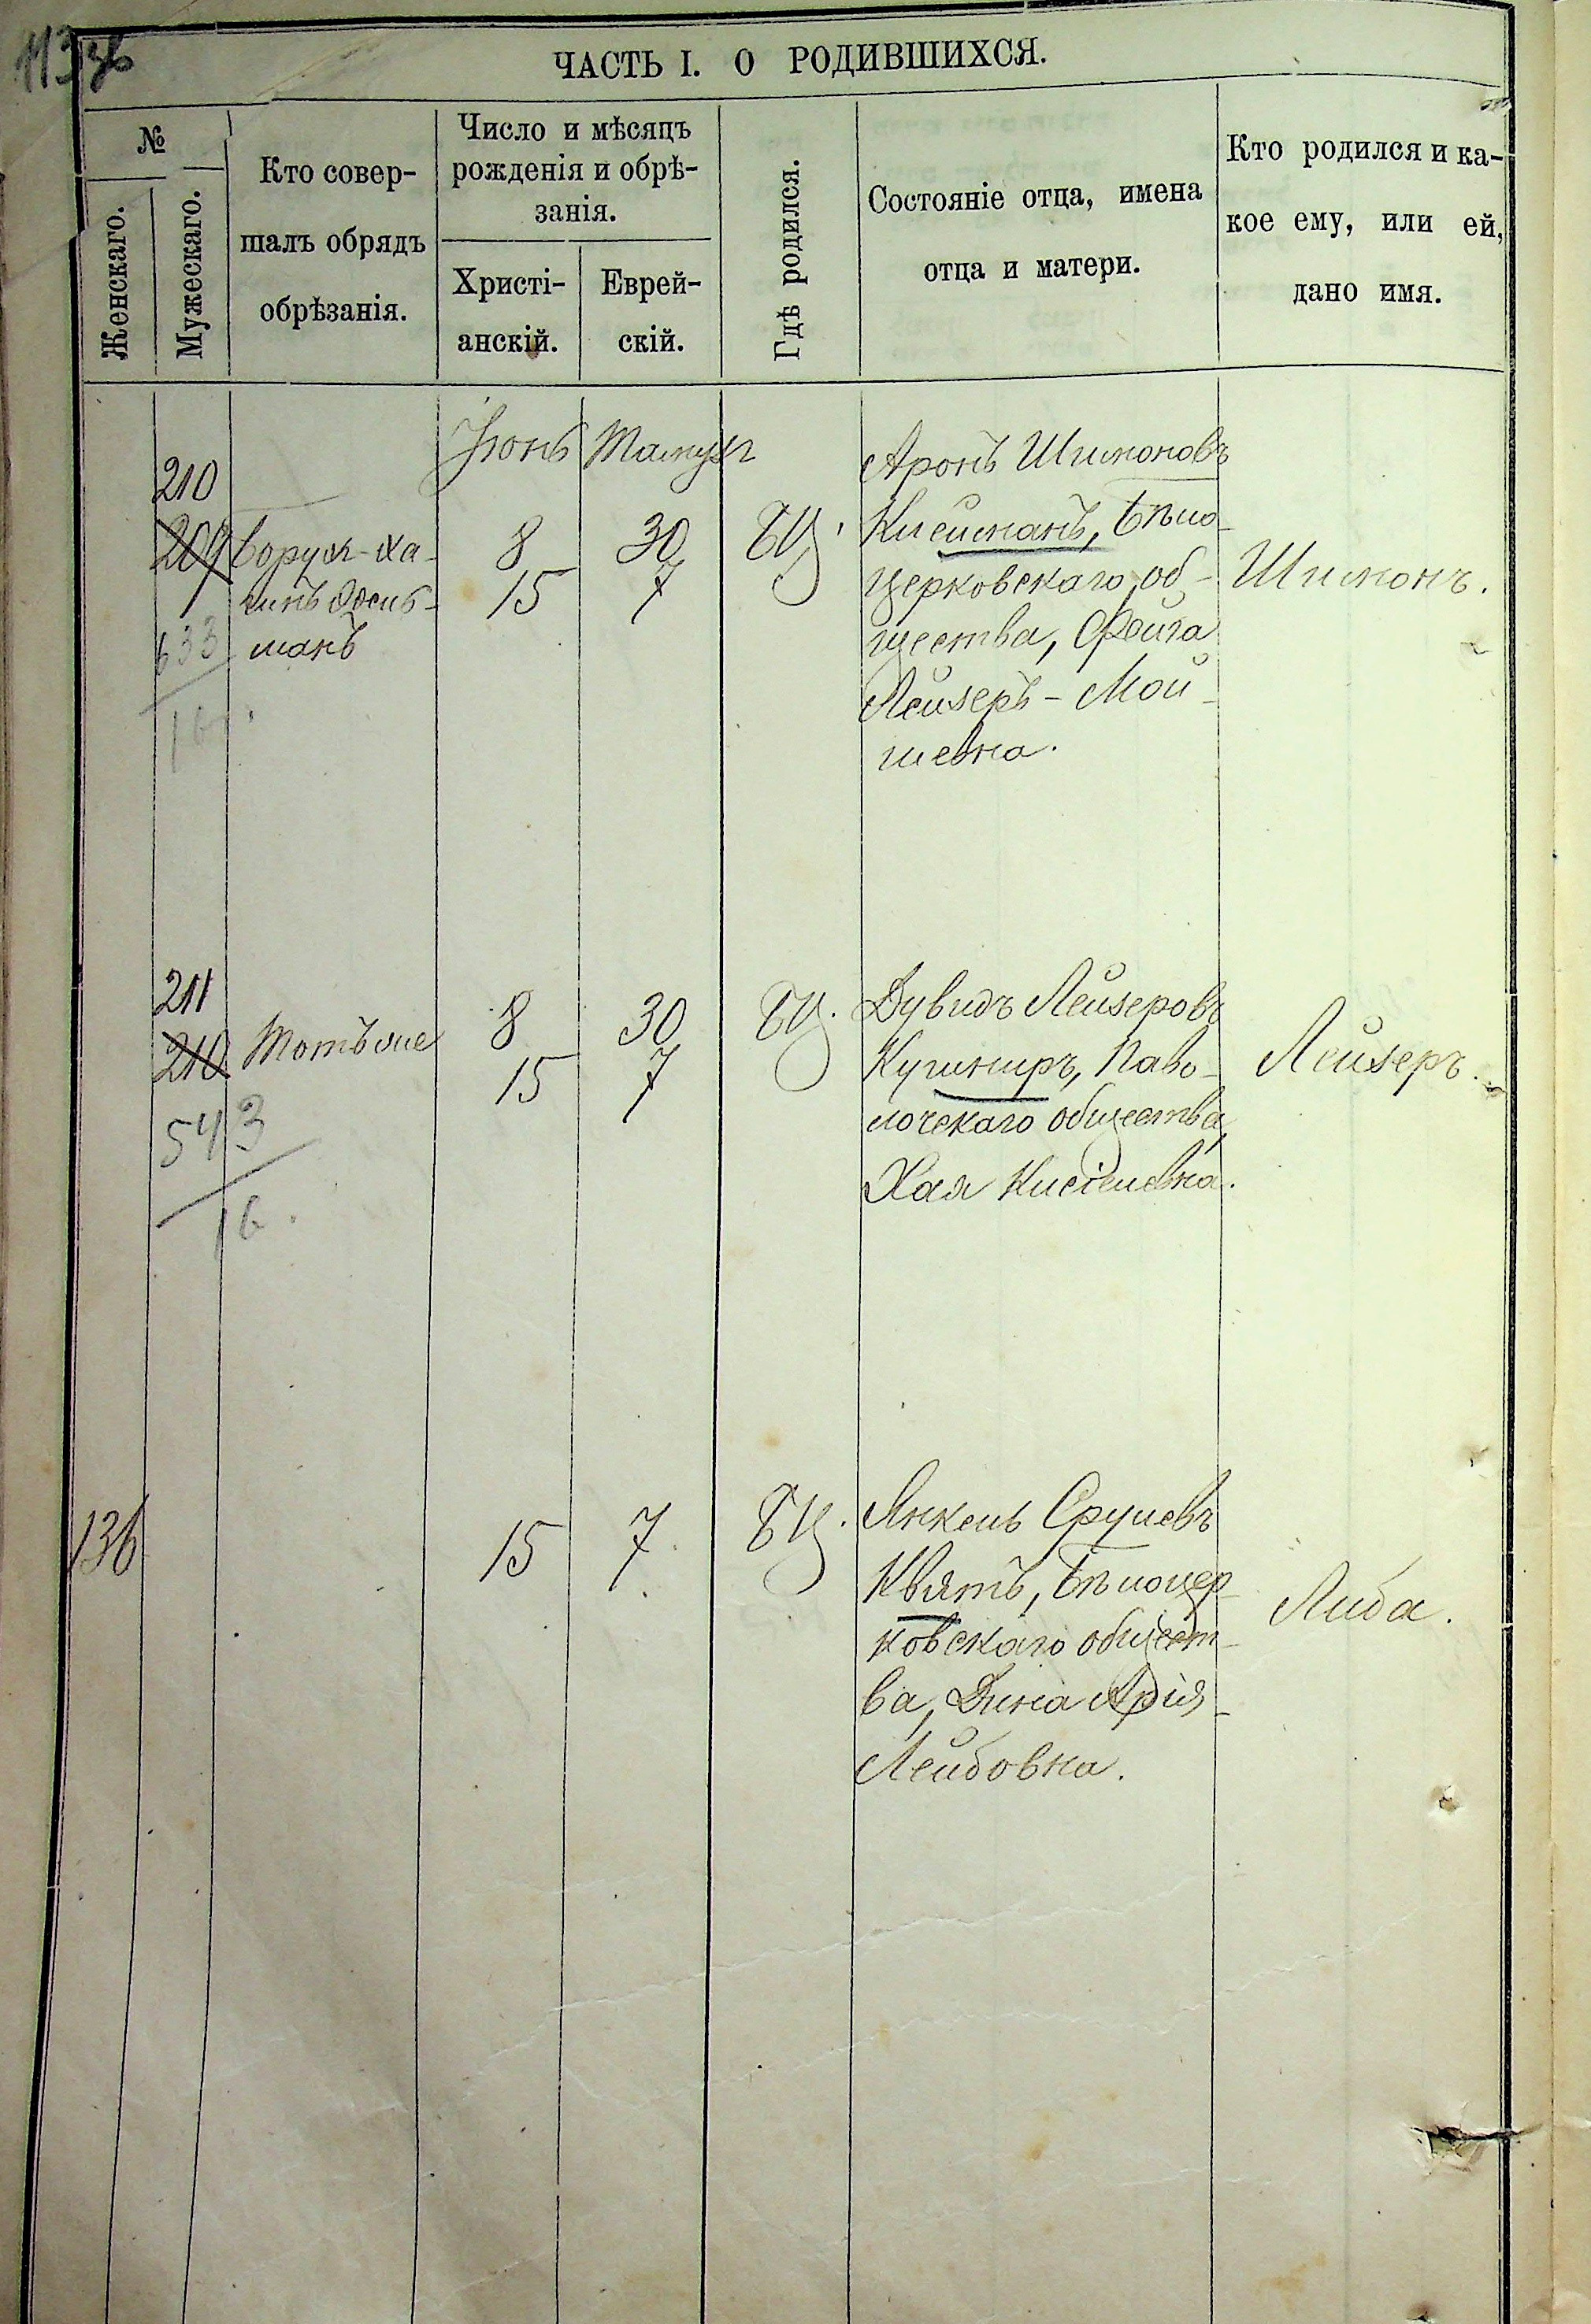 ЧАСТЬ I. О РОДИВШИХСЯ.
№
Женскаго.
Мужескаго.
Кто совер-
шалъ обрядъ
обрѣзанія.
Число и мѣсяцъ
рожденія и обрѣ-
занія.
Христі-
анскій.
Еврей-
скій.
Гдѣ родился.
Состояніе отца, имена
отца и матери.
Кто родился и ка-
кое ему, или ей,
дано имя.
Іюнь Тамузъ
210
209
633
16.
Борухъ-Ха-
имъ Эдель-
манъ
8 30
15 7
БЦ.
Аронъ Шимоновъ
Клейманъ, Бѣло-
церковскаго об-
щества, Фейга
Лейзеръ-Мой-
шевна.
Шимонъ.
211
210
543
16.
Тотъ же
8 30
15 7
БЦ.
Дувидъ Лейзеровъ
Кушниръ, Паво-
лочскаго общества,
Хая Кисілевна.
Лейзеръ.
136
15 7
БЦ.
Янкель Срулевъ
Квятъ, Бѣлоцер-
ковскаго общест-
ва, Дина Арія-
Лейбовна.
Либа.